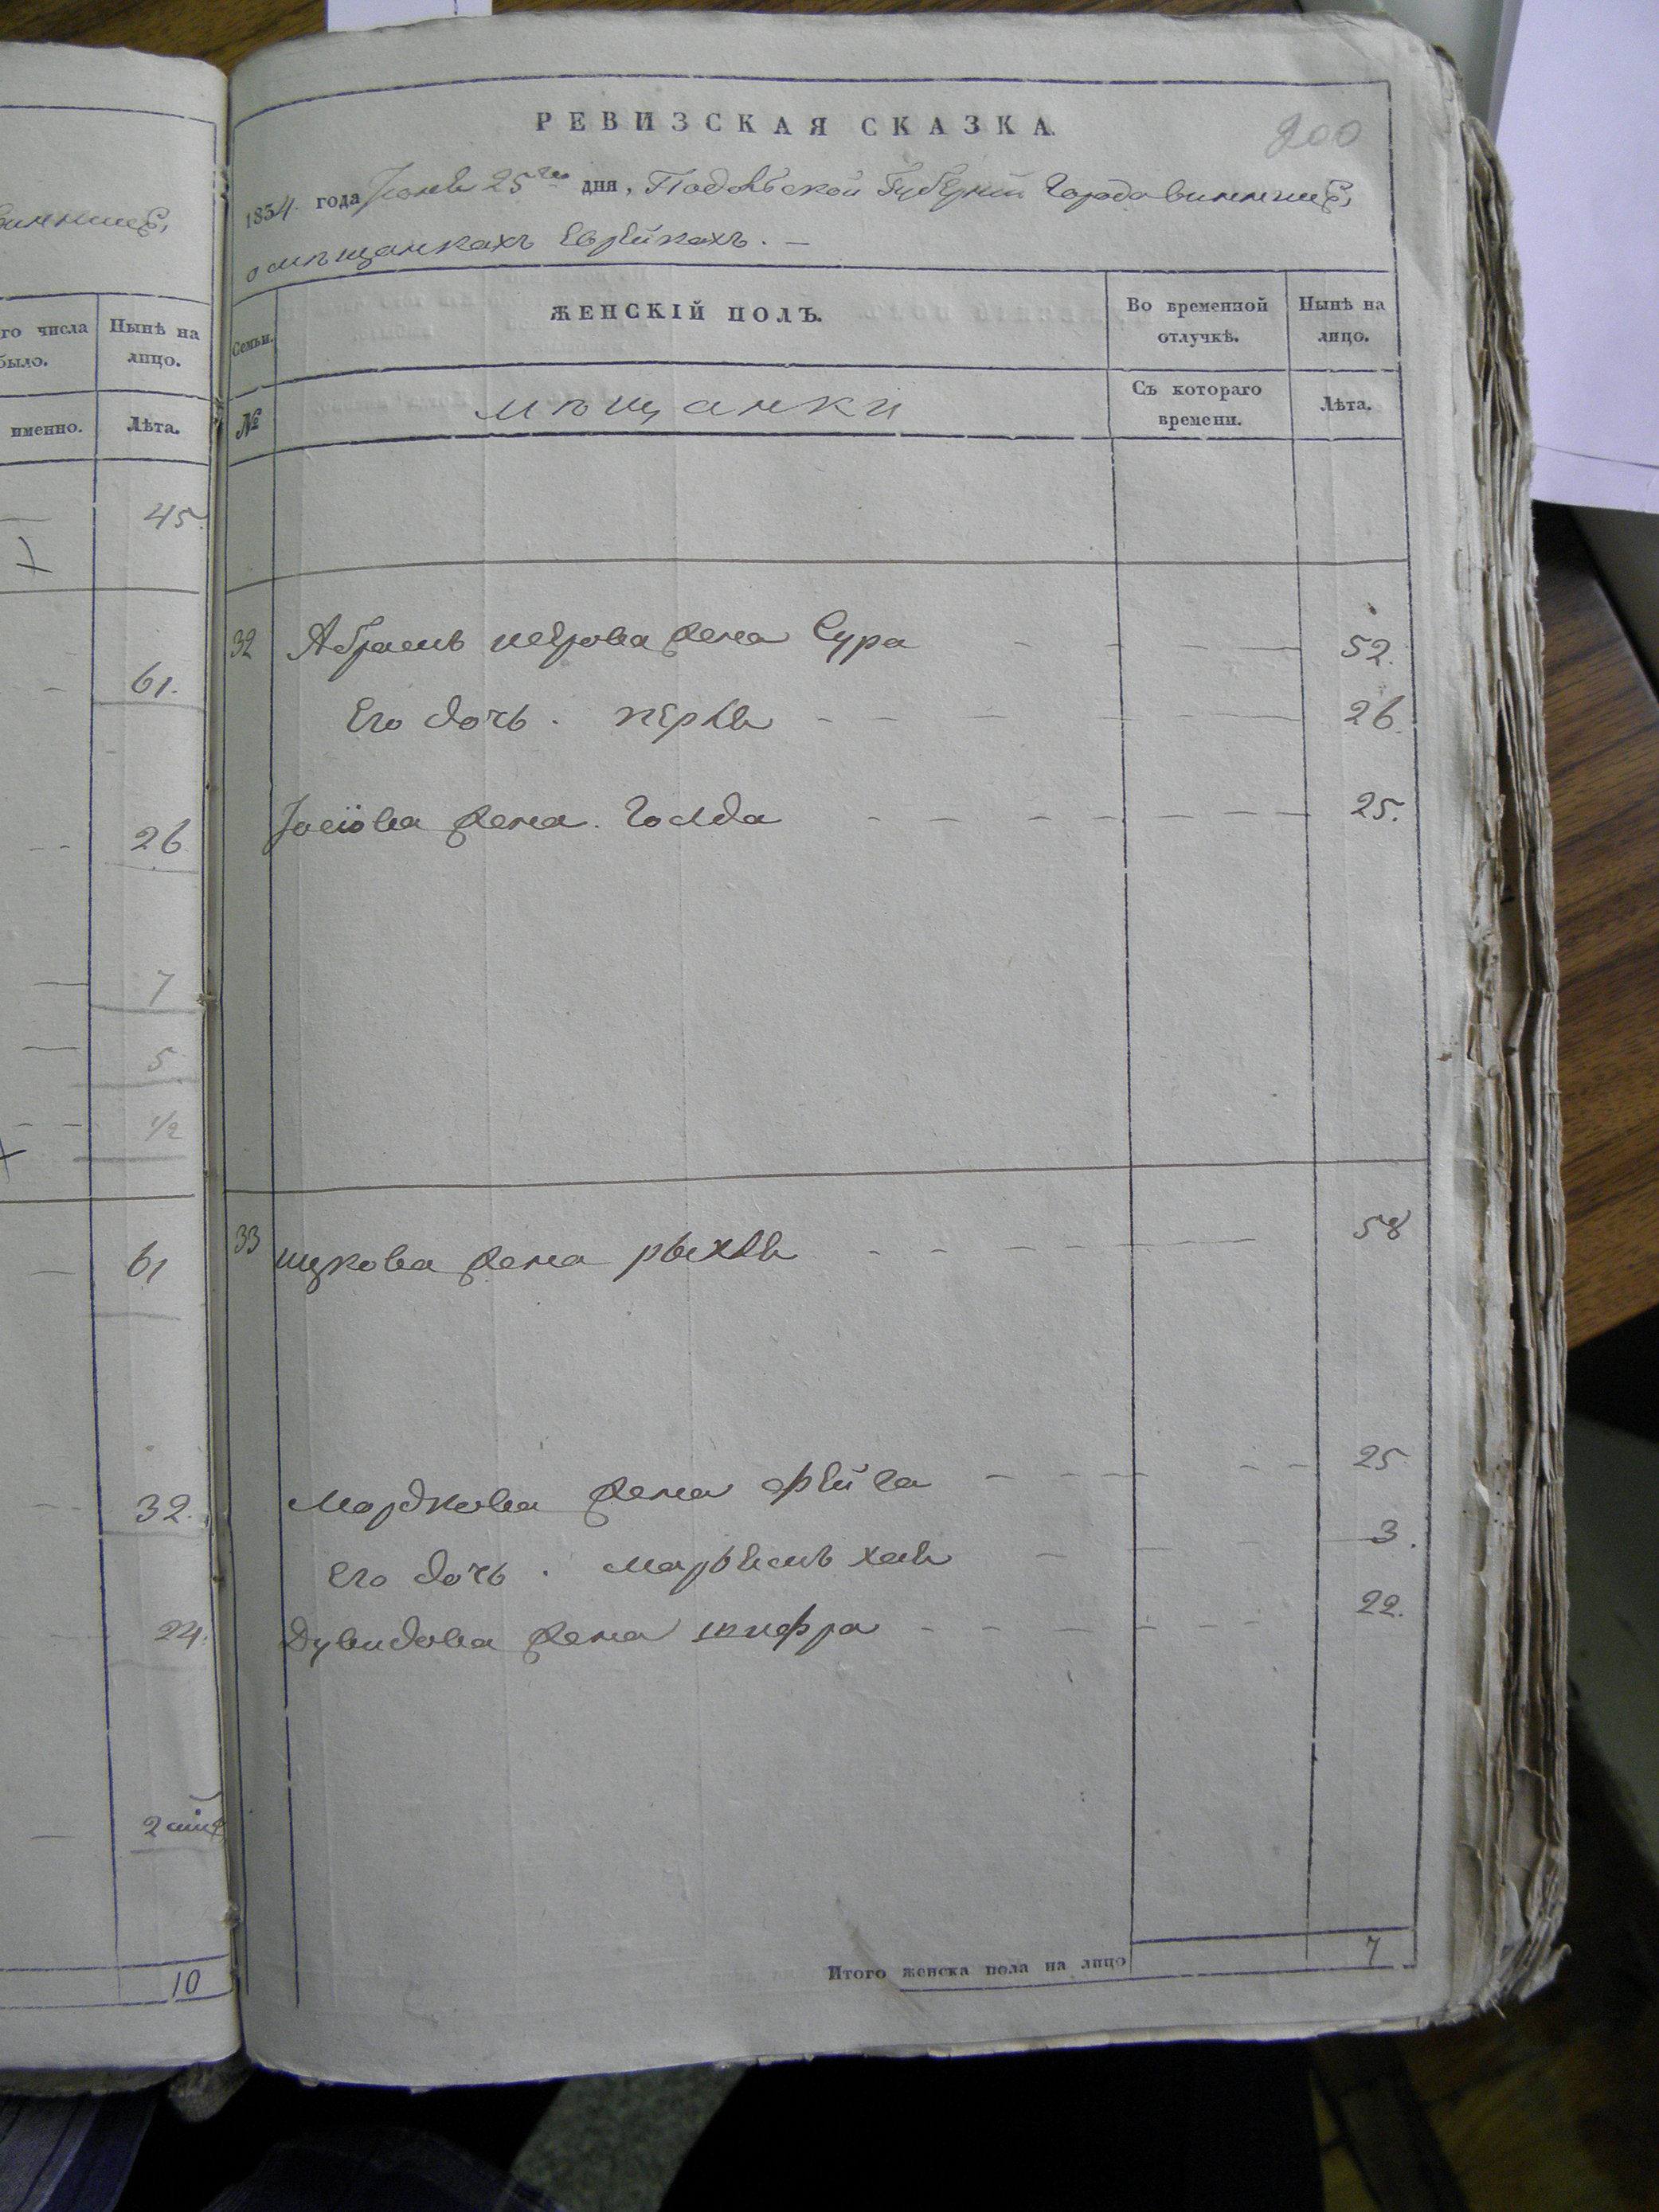 виннице,
го числа
было.
Нынѣ на
лицо.
именно.
Лѣта.
45.
61.
26
7
5
1/2
61
32.
24.
10
РЕВИЗСКАЯ СКАЗКА.
200
1854. года Іюня 25го дня, Подольской Губерніи Города винницы,
о мѣщанкахъ Еврейкахъ. —
Семьи.
ЖЕНСКІЙ ПОЛЪ.
Во временной
отлучкѣ.
Нынѣ на
лицо.
№
мѣщанки
Съ котораго
времени.
Лѣта.
32 Абрамъ жена Сура 52.
Его дочь. перля 26.
Іосіова жена. Голда 25.
33 ицкова жена рыхля 58
Мордкова жена фейга 25
Его дочь. марьемъ хая 3.
Дувидова жена шифра 22.
Итого женска пола на лицо 7